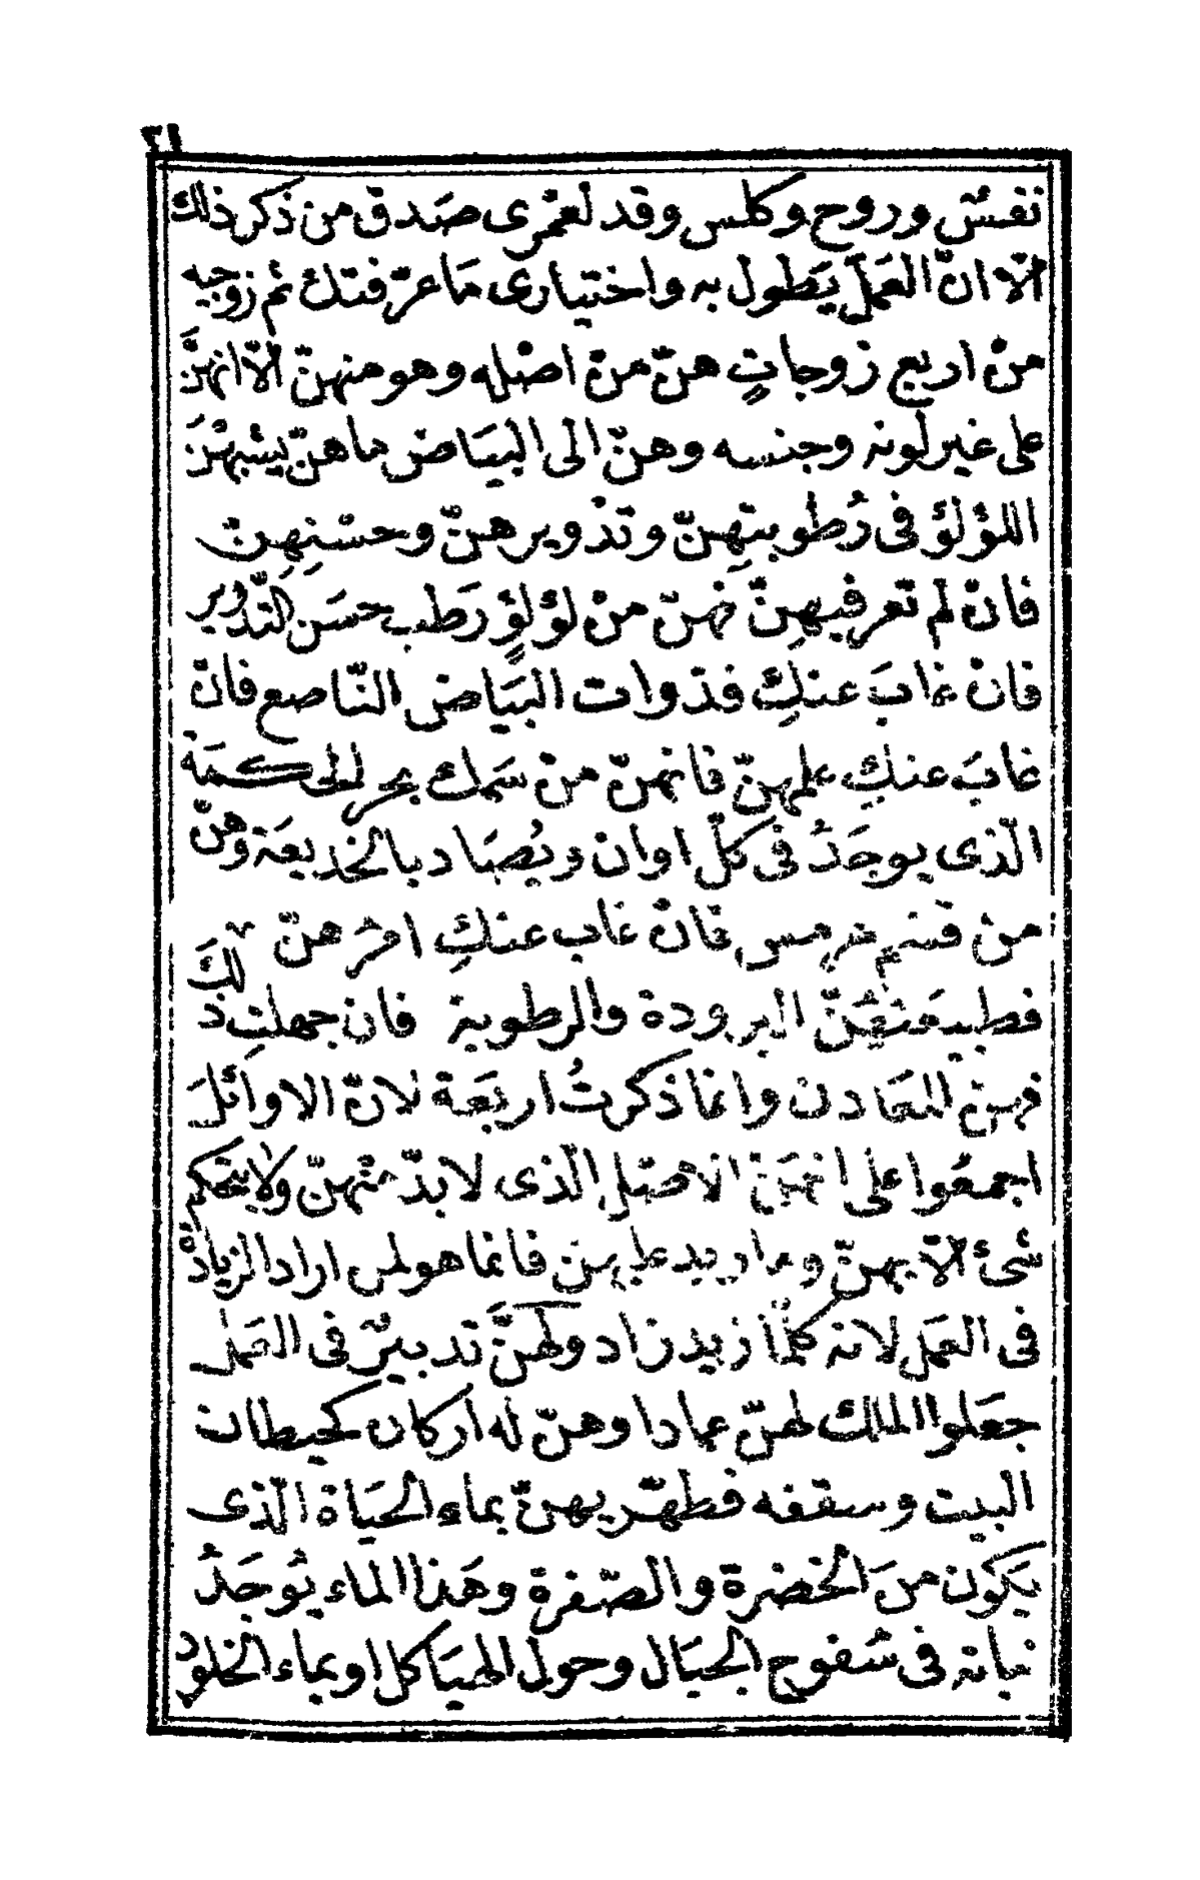 ٢١
نفسٌ وروح وكلس وقد لعمْرى صَدق من ذكر ذلك
الّا انّ العَمَل يَطول به واختيارى مَا عرّفتك ثم زوجيه
منْ اربع زوجاتٍ هنّ منْ اصْله وهو منهنّ الّا انهنَّ
على غير لونه وجنسه وهنّ الى البيَاض ما هنّ يشبهْنَ
اللؤلؤ فى رُطوبتهِنّ وتدْويرهنّ وحسْنِهِنّ
فانْ لم تعرفيهِنّ فهنّ منْ لؤلؤٍ رَطب حسَن التّدْوير
فانْ غابَ عنكِ فذوات البَيَاض النّاصع فانْ
غابَ عنكِ علمهنّ فانهنّ منْ سَمك بحر لحى كمَة
الّذى يوجَدُ فى كلّ اوان ويُصَاد بالخديعَة وهنّ
منْ قسْم هرمس فانْ غاب عنكِ امْرهنّ
فطبيعَتهُنّ البرودة والرطوبة فان جهلتِ ذلكَ
فهنّ المعَادن وانما ذكرتُ اربَعة لانّ الاوائلَ
اجمعُوا على انهنّ الاصْل الّذى لا بدّ منْهنّ ولا يتحكم
شئ الّا بهنّ وما اريد عليهنّ فانما هو لمن اراد الزيادة
فى العمَل لانه كلّما زيد زاد ولهنَّ تدبيرٌ فى العمَل
جعَلوا الملك لهنّ عمادا وهنّ له اركان كحيطان
البيت وسقفه فطهّريهنّ بماء الحيَاة الّذى
يَكوْن منَ الخضرة والصّفرة وهَذا الماء يُوجَدُ
نباته فى سُفوح الجبَال وحول الهيَاكل او بماء الخلود